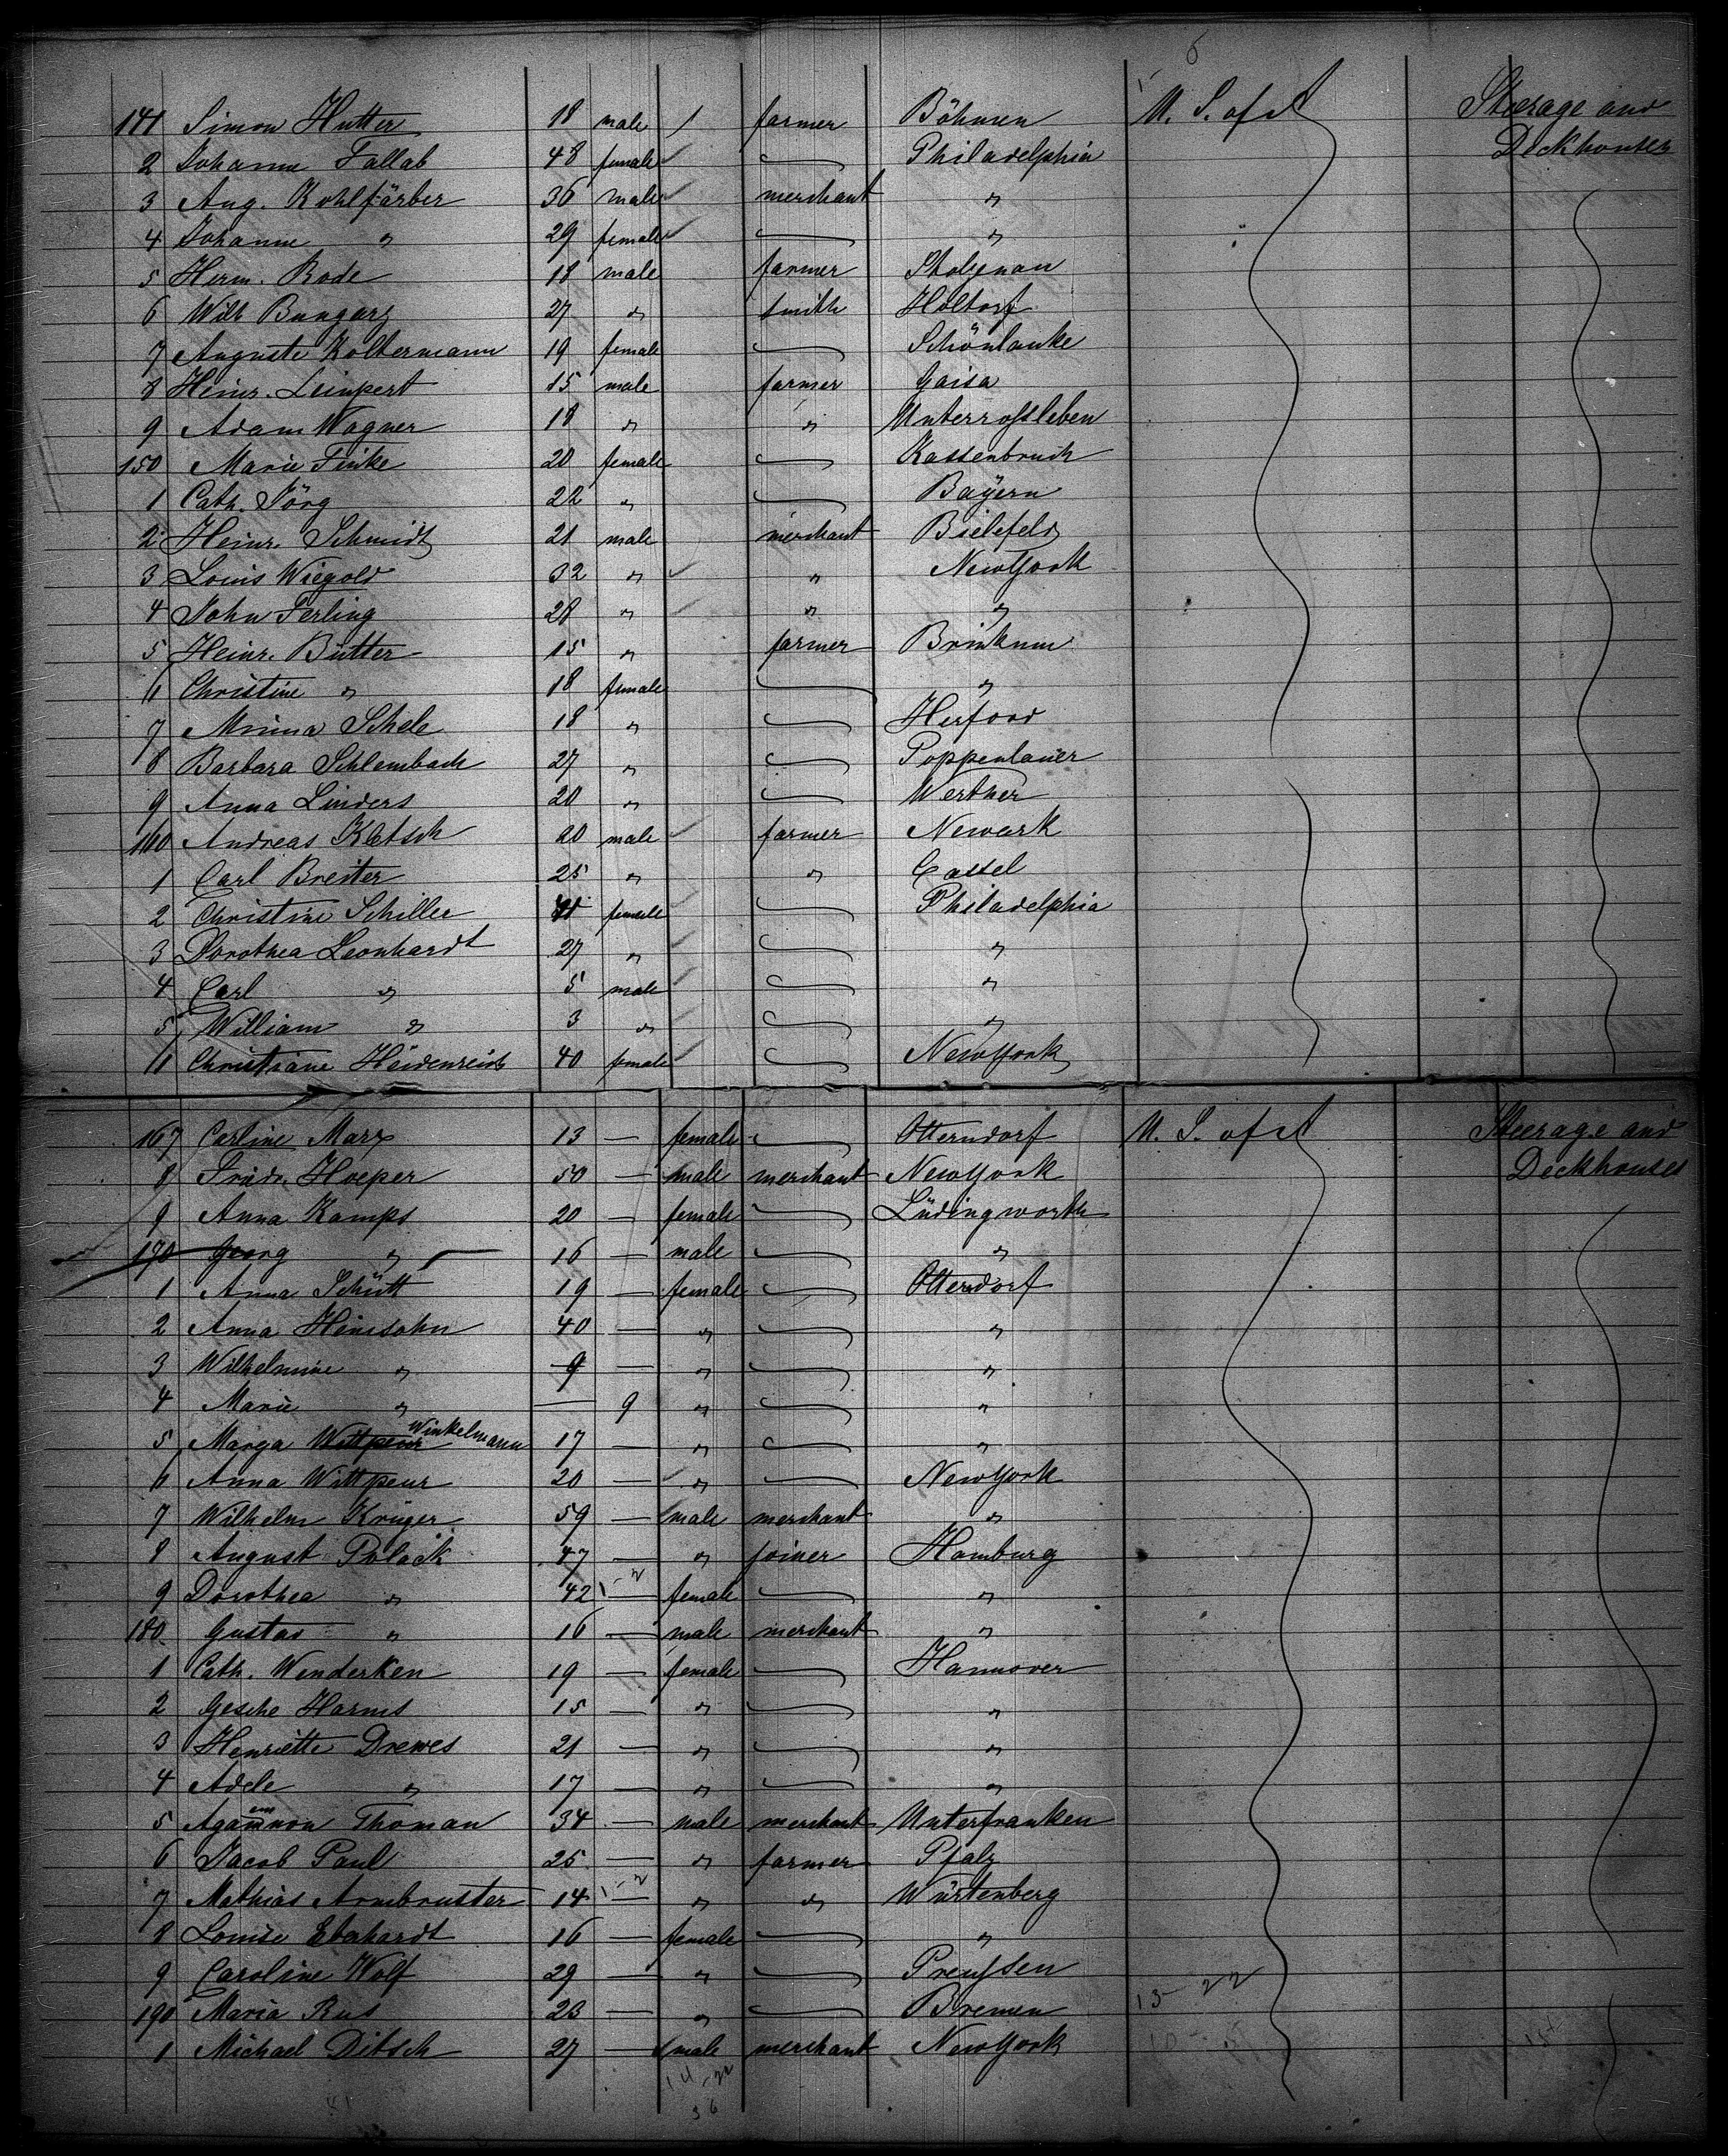 141 Simon Hutter 18 male / farmer Böhmen U. S. of A Steerage and
2 Johanna Fallab 48 female ✓ — Philadelphia Deckhouses
3 Aug. Kohlfärber 36 male ✓ merchant "
4 Johanne " 29 female ✓ — "
5 Herm. Rode 18 male farmer Stolzenau
6 Wilh Bungarz 27 " smith Holtorf
7 Auguste Koltermann 19 female — Schönlanke
8 Heinr. Leinpert 15 male farmer Gaisa
9 Adam Wagner 18 " " Unterrossleben
150 Marie Finke 20 female — Kassenbruch
1 Cath. Jörg 22 " — Bayern
2 Heinr. Schmidt 21 male merchant Bielefeld
3 Louis Wiegold 32 " ✓ " New York
4 John Ferling 28 " ✓ " "
5 Heinr. Bütter 15 " farmer Brinkum
6 Christine " 18 female — "
7 Minna Schele 18 " — Herford
8 Barbara Schlembach 27 " — Poppenlauer
9 Anna Linders 20 " — Werther
160 Andreas Kletsch 20 male ✓ farmer Newark
1 Carl Breiter 25 " " Cassel
2 Christine Schiller female ✓ — Philadelphia
3 Dorothea Leonhardt 27 " ✓ — "
4 Carl " 5 male ✓ — "
5 William " 3 " ✓ — "
6 Christiane Heidenreich 40 female ✓ — New York
167 Carline Marx 13 — female — Otterndorf U. S. of A Steerage and
8 Friedr. Hoeper 50 — male merchant New York Deckhouses
9 Anna Kamps 20 — female — Lüdingworth
170 Georg " 16 — male — "
1 Anna Schütt 19 — female — Otterdorf
2 Anna Hinsohn 40 — " — "
3 Wilhelmine " 9 — " — "
4 Marie " — 9 " — "
5 Marga Wittpenn Winkelmann 17 — " — "
6 Anna Wittpenn 20 — " — New York
7 Wilhelm Krüger 59 — male merchant "
8 August Polack 47 — " joiner Hamburg
9 Dorothea " 42 — female — "
180 Gustav " 16 — male merchant "
1 Cath. Wenderken 19 — female — Hannover
2 Gesche Harms 15 — " — "
3 Henriette Drewes 21 — " — "
4 Adele " 17 — " — "
5 Agamemnon Thoman 34 — male merchant Unterfranken
6 Jacob Paul 25 — " farmer Pfalz
7 Mathias Armbruster 14 — " " Würtenberg
8 Louise Eberhardt 16 — female — "
9 Caroline Wolf 29 — " — Preussen
190 Maria Rus 23 — " — Bremen 13-22
1 Michael Ditsch 27 — male merchant New York
14-22
36